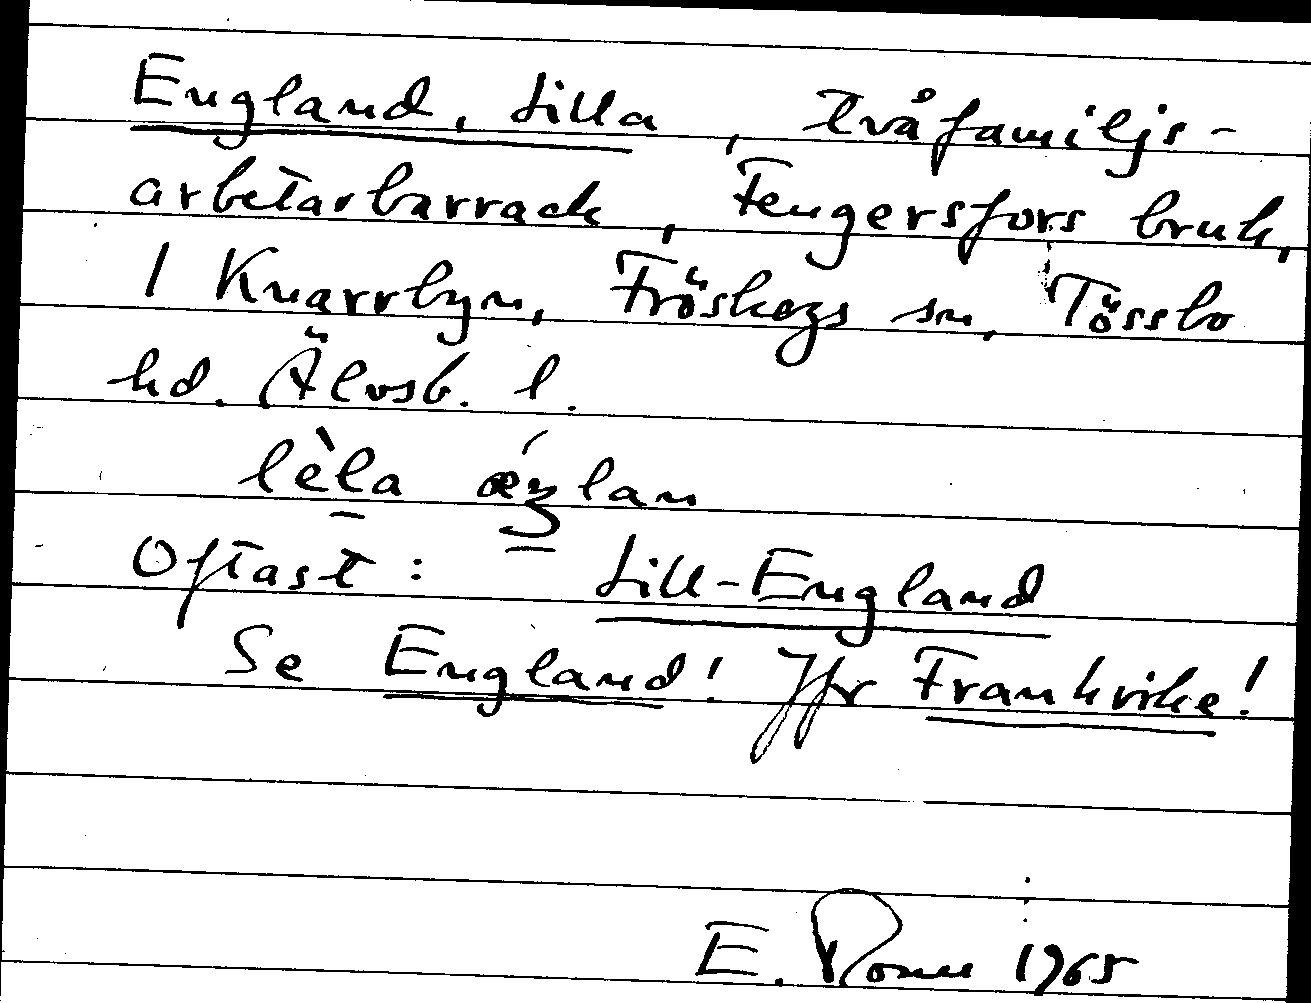 England, Lilla, tvåfamiljs-
arbetarbarrack, Fengersfors bruk,
1 Knarrbyn, Fröskogs sn, Tössbo
hd. Älvsb. l.
lèla ǽŋlan
Oftast: Lill-England
Se England! Jfr Frankrike!
E. 1965